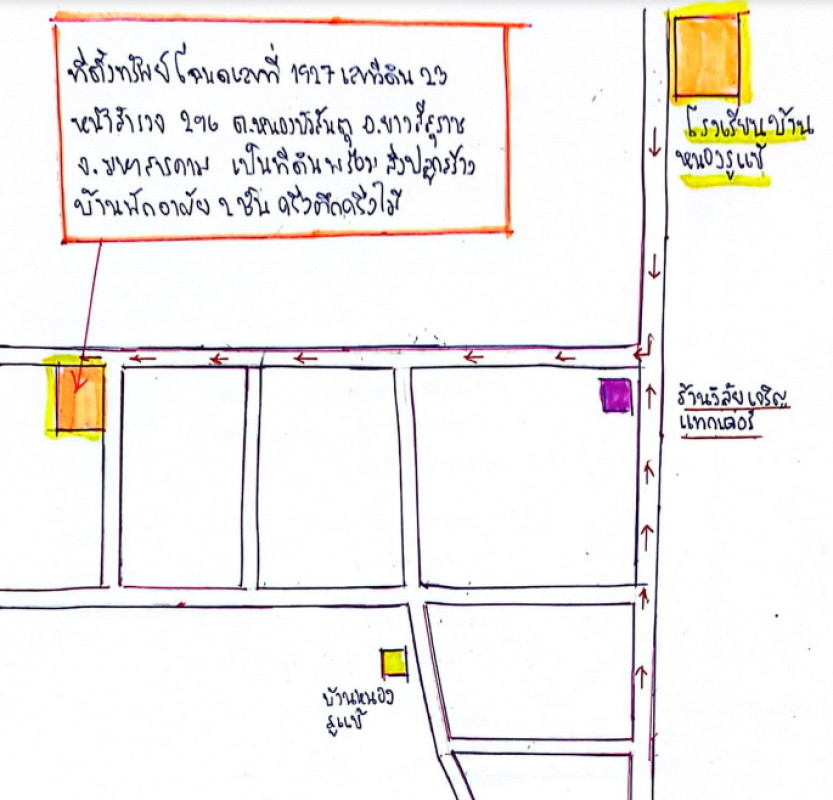 ที่ตั้งทรัพย์ โฉนดเลขที่ 1927 เลขที่ดิน 23
หน้าสำรวจ 296 ต.หนองบัวสันตุ อ.ยางสีสุราช
จ.มหาสารคาม เป็นที่ดินพร้อม สิ่งปลูกสร้าง
บ้านพักอาศัย 2 ชั้น ครึ่งตึกครึ่งไม้
โรงเรียนบ้าน
หนองรูแข้
ร้านวิลัยเจริญ
แทกเตอร์
บ้านหนอง
รูแข้